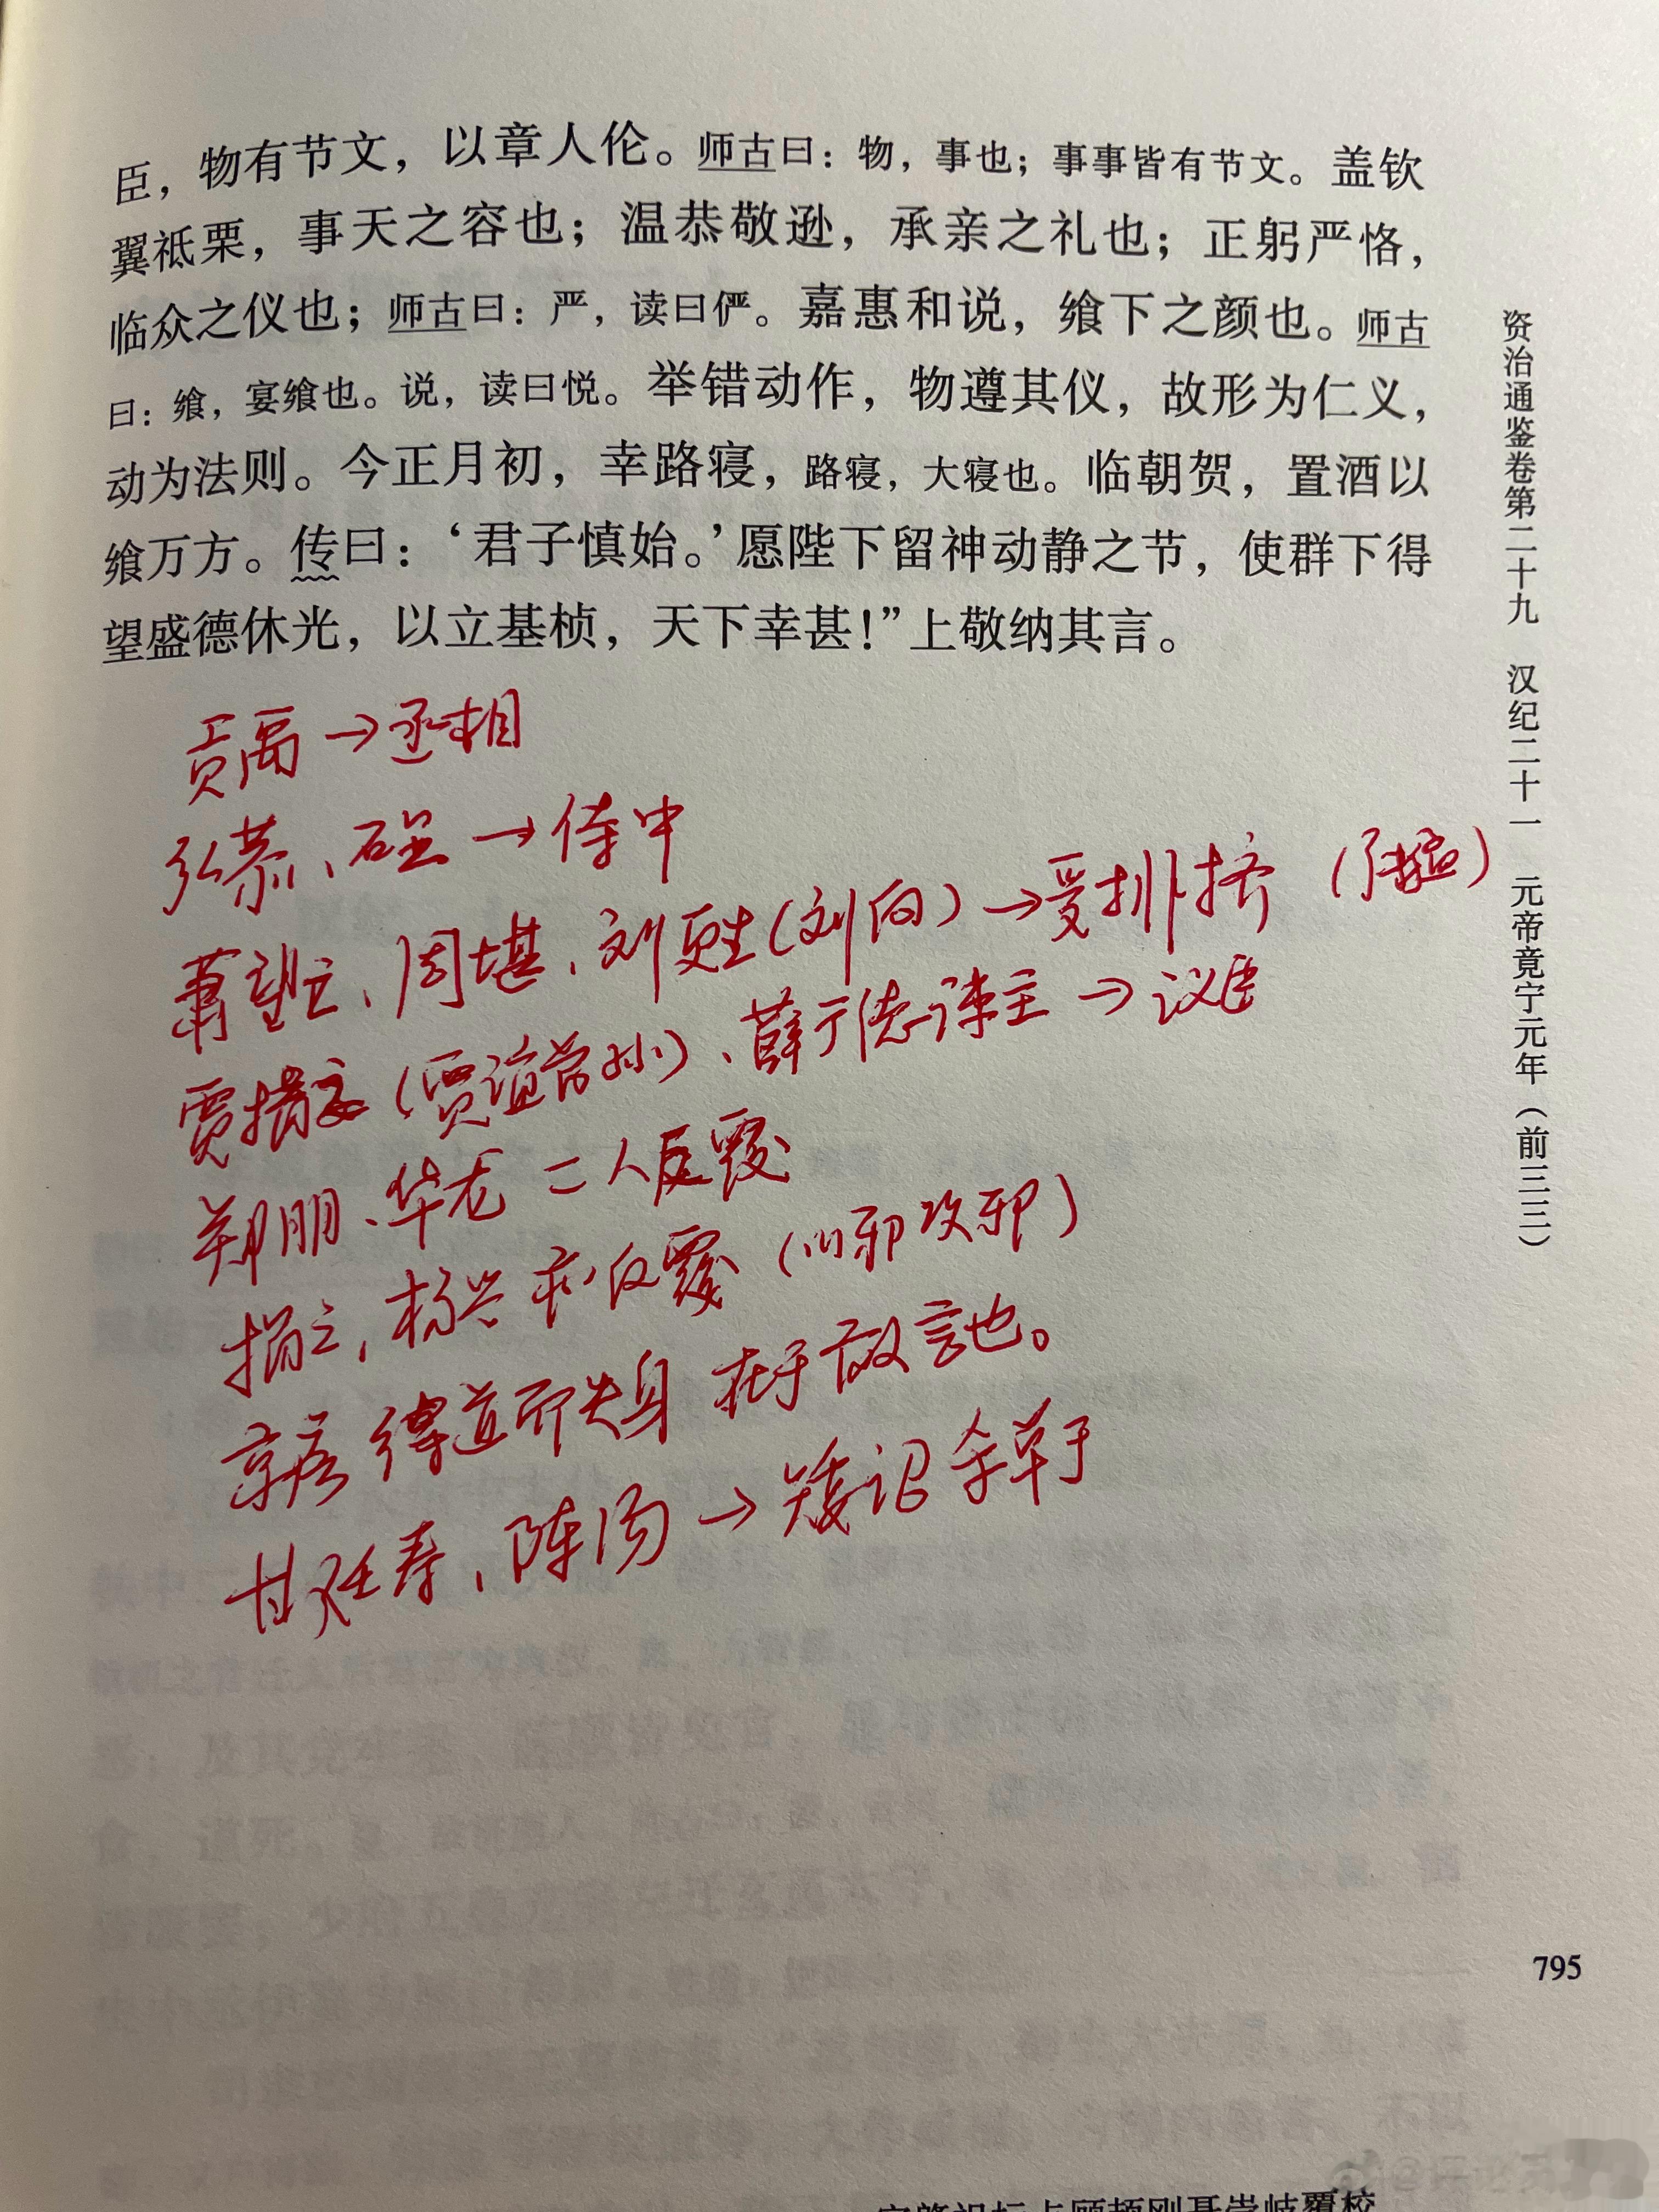 臣，物有节文，以章人伦。师古曰：物，事也；事事皆有节文。盖钦
翼祗栗，事天之容也；温恭敬逊，承亲之礼也；正躬严恪，
临众之仪也；师古曰：严，读曰俨。嘉惠和说，飨下之颜也。师古
曰：飨，宴飨也。说，读曰悦。举错动作，物遵其仪，故形为仁义，
动为法则。今正月初，幸路寝，路寝，大寝也。临朝贺，置酒以
飨万方。传曰：‘君子慎始。’愿陛下留神动静之节，使群下得
望盛德休光，以立基桢，天下幸甚！”上敬纳其言。
贡禹→丞相
弘恭、石显→侍中
萧望之、周堪、刘更生（刘向）→受排挤（张猛）
贾捐之（贾谊曾孙）、薛广德谏主→议臣
郑朋、华龙二人反覆
捐之，杨兴亦反覆（以邪攻邪）
京房得道而失身在于放言也。
甘延寿，陈汤→矮诏杀单于
资治通鉴卷第二十九 汉纪二十一 元帝竟宁元年（前三三）
795